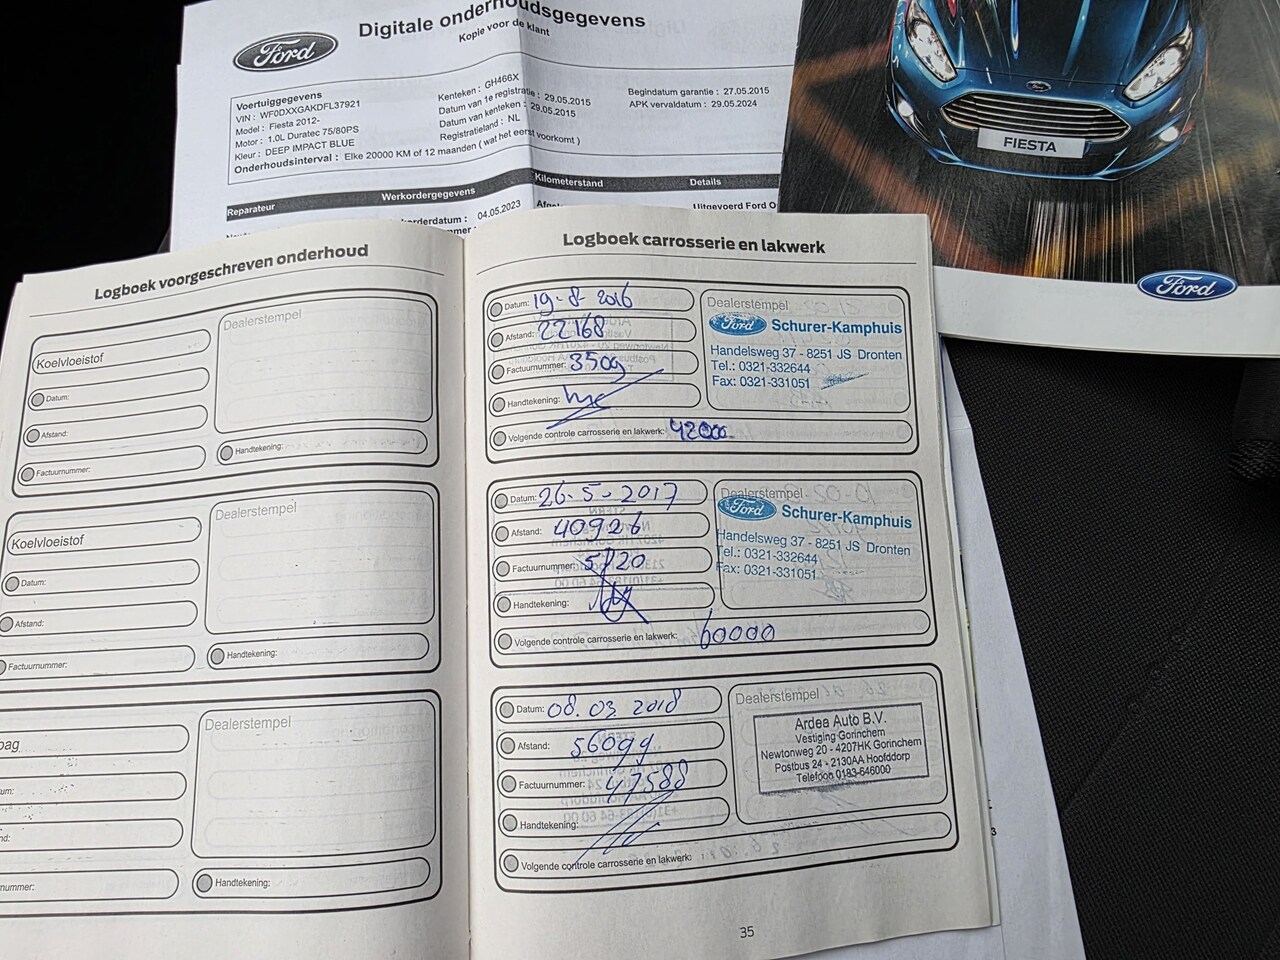 Ford
Digitale onderhoudsgegevens
Kopie voor de klant
Voertuiggegevens
VIN : WF0DXXGAKDFL37921
Model : Fiesta 2012-
Motor : 1.0L Duratec 75/80PS
Kleur : DEEP IMPACT BLUE
Onderhoudsinterval : Elke 20000 KM of 12 maanden ( wat het eerst voorkomt )
Kenteken : GH466X
Datum van 1e registratie : 29.05.2015
Datum van kenteken : 29.05.2015
Registratieland : NL
Begindatum garantie : 27.05.2015
APK vervaldatum : 29.05.2024
Reparateur Werkordergegevens Kilometerstand Details
korderdatum : 04.05.2023
Uitgevoerd Ford O
FIESTA
Ford
Logboek voorgeschreven onderhoud
Koelvloeistof
Datum:
Afstand:
Factuurnummer:
Dealerstempel
Handtekening:
Koelvloeistof
Datum:
Afstand:
Factuurnummer:
Dealerstempel
Handtekening:
Dealerstempel
Handtekening:
Logboek carrosserie en lakwerk
Datum: 19-8-2016
Afstand: 22168
Factuurnummer: 3509
Handtekening:
Volgende controle carrosserie en lakwerk: 42000
Dealerstempel
Ford Schurer-Kamphuis
Handelsweg 37 - 8251 JS Dronten
Tel.: 0321-332644
Fax: 0321-331051
Datum: 26-5-2017
Afstand: 40926
Factuurnummer: 5720
Handtekening:
Volgende controle carrosserie en lakwerk: 60000
Dealerstempel
Ford Schurer-Kamphuis
Handelsweg 37 - 8251 JS Dronten
Tel.: 0321-332644
Fax: 0321-331051
Datum: 08.03.2018
Afstand: 56099
Factuurnummer: 47588
Handtekening:
Volgende controle carrosserie en lakwerk:
Dealerstempel
Ardea Auto B.V.
Vestiging Gorinchem
Newtonweg 20 - 4207HK Gorinchem
Postbus 24 - 2130AA Hoofddorp
Telefoon 0183-646000
35